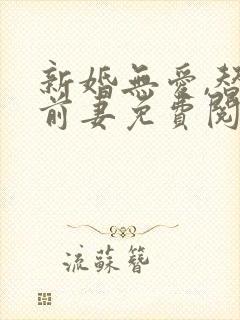 新婚無愛,替
前妻免費閱
流蘇簪